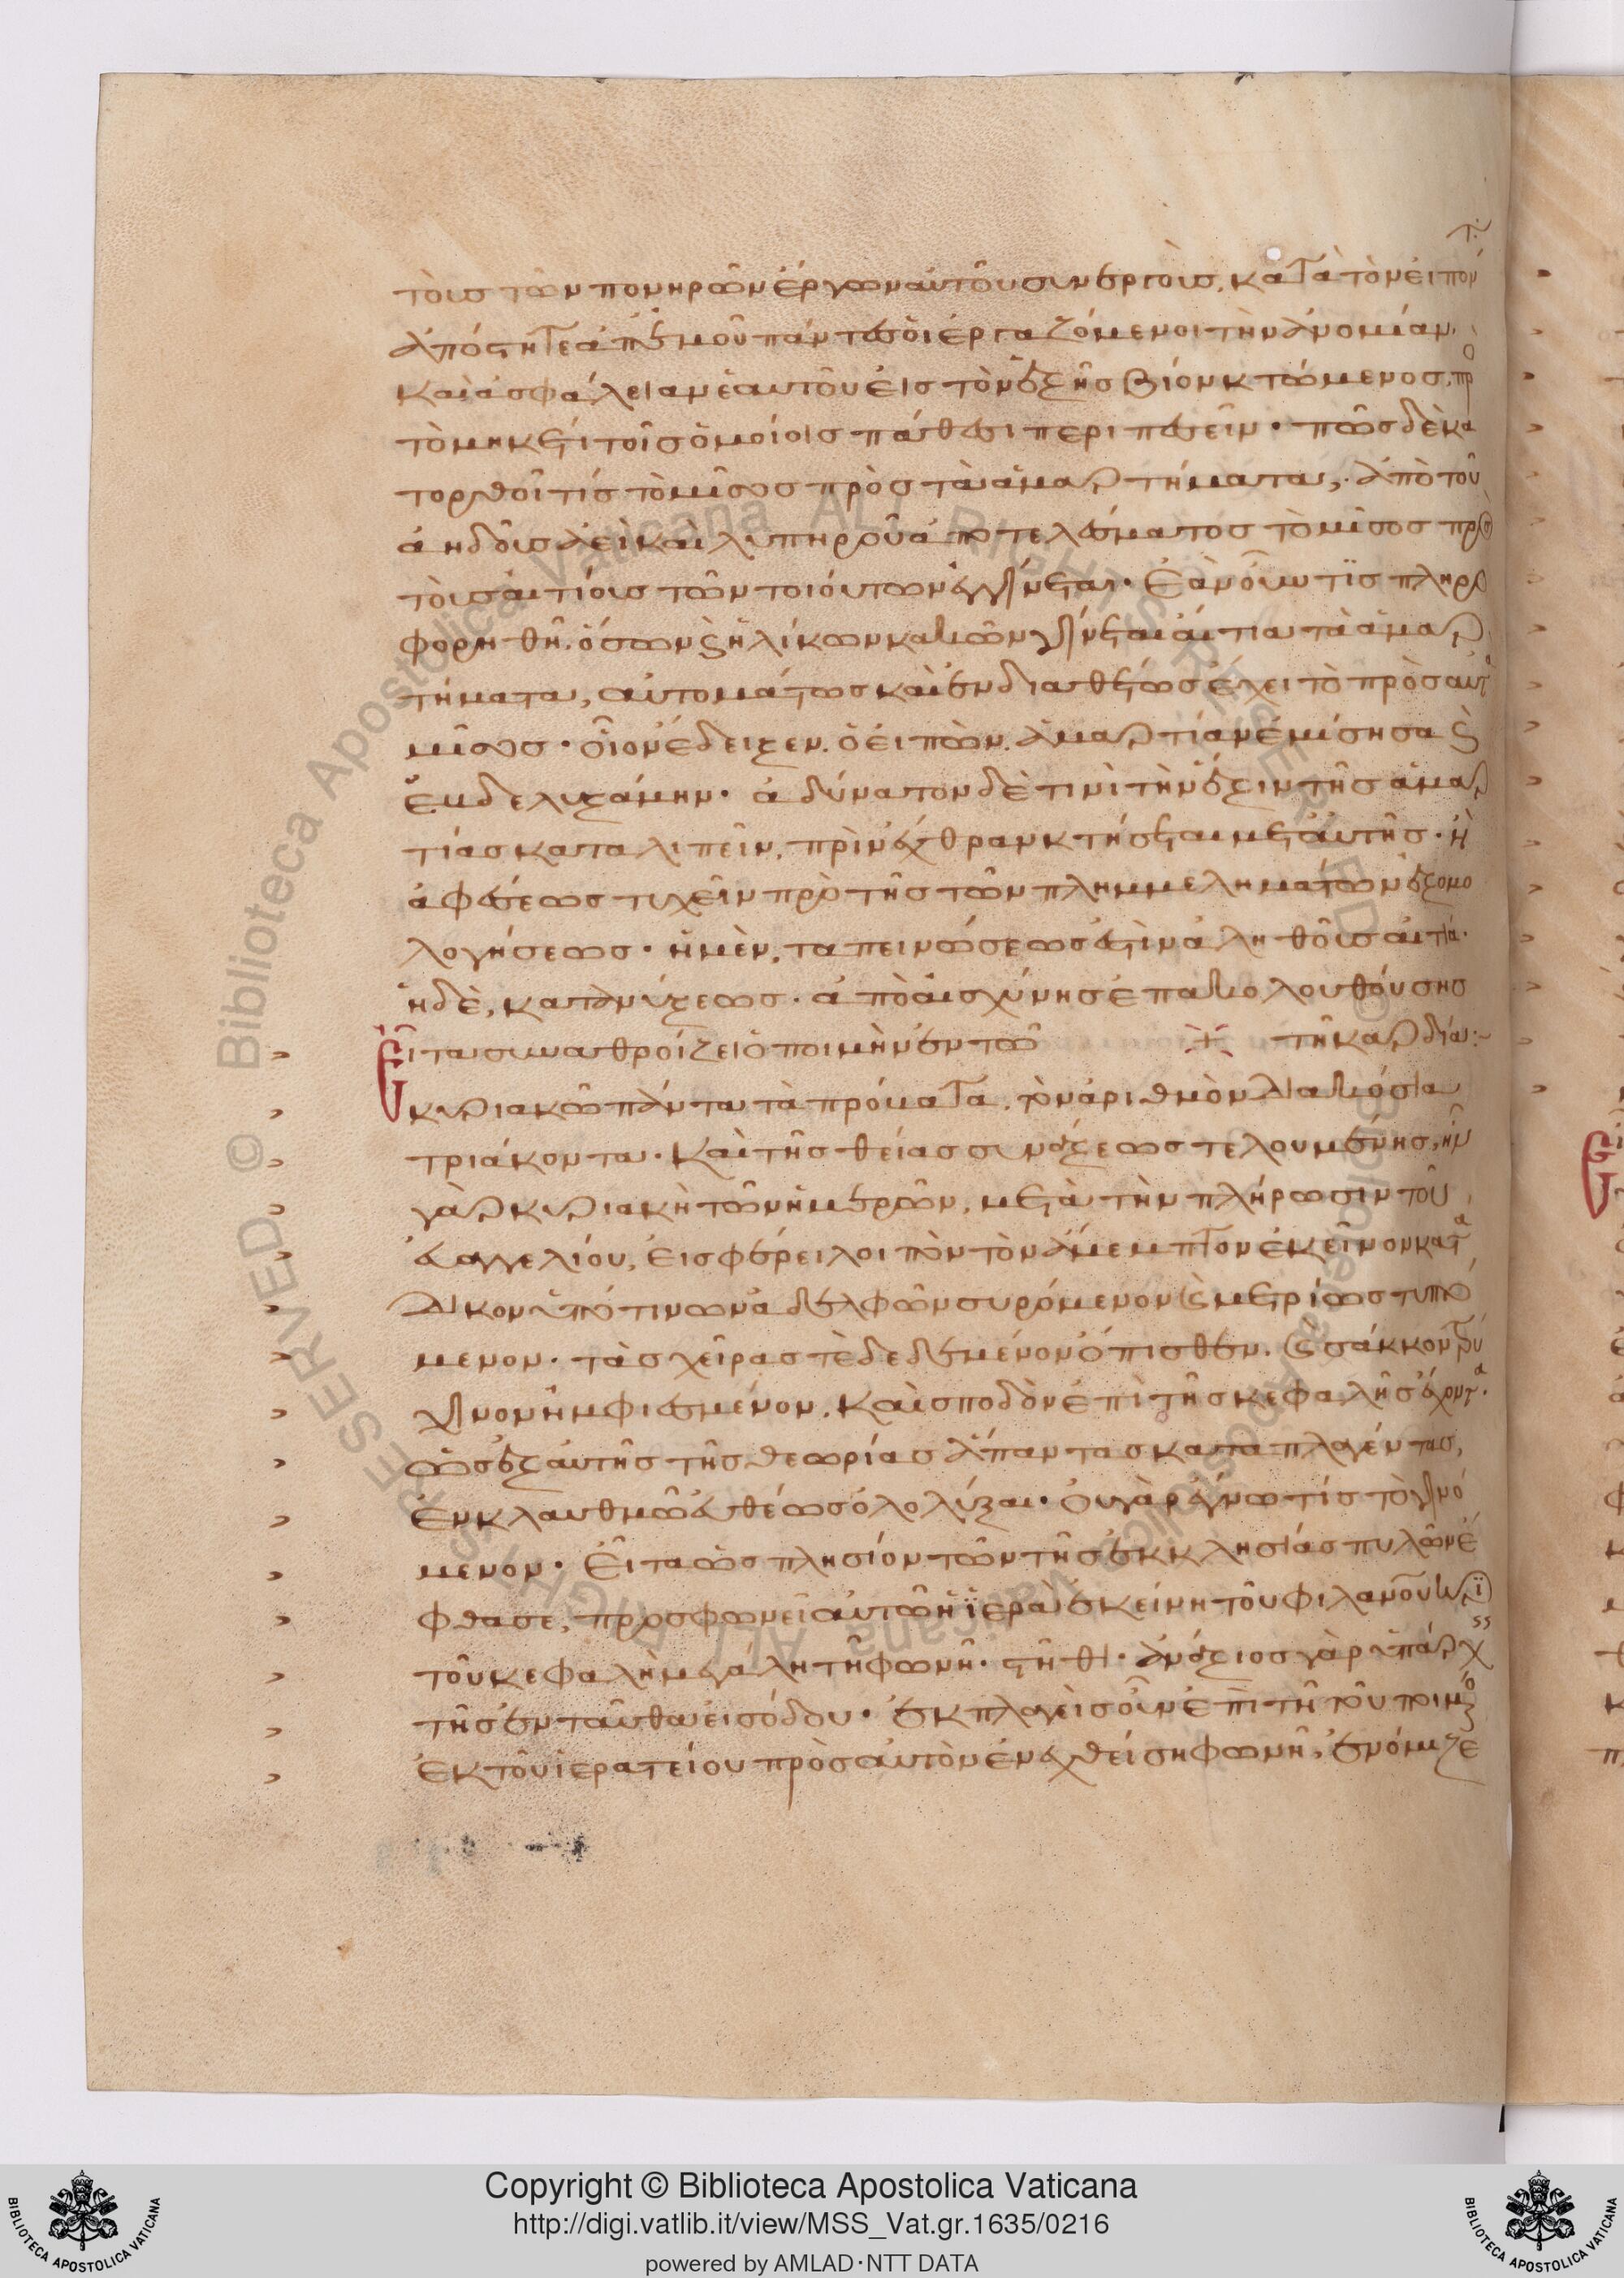 τοὺς τῶν πονηρῶν ἔργων αὐτοῦ συνεργοὺς, κατὰ τὸν εἰπόν
ἀπόστητε ἀπ' ἐμοῦ πάντες οἱ ἐργαζόμενοι τὴν ἀνομίαν.
καὶ ἀσφάλειαν ἑαυτοῦ εἰς τὸν ἑξῆς βίον κτώμενος, πρ
τὸ μηκέτι τοῖς ὁμοίοις πάθεσι περιπεσεῖν. πῶς δὲ κα
τορθοῖ τίς τὸ μῖσος πρὸς τὰ ἁμαρτήματα; ἀπὸ τοῦ
ἀηδοῦς ἀεὶ καὶ λυπηροῦ ἀποτελέσματος τὸ μῖσος πρὸ
τοὺς αἰτίους τῶν τοιούτων ἐγγίνεται. Ἐὰν οὖν τὶς πληρο
φορηθῆ, ὅσων καὶ ἡλίκων κακῶν γίνεται αἴτια τὰ ἁμαρ
τήματα, αὐτομάτως καὶ ἐνδιαθέτως ἔχει τὸ πρὸς αὐτ
μῖσος. οἷον ἔδειξεν, ὁ εἰπών. ἁμαρτίαν ἐμίσησα καὶ
ἐβδελυξάμην. ἀδύνατον δὲ τινὶ τὴν ἕξιν τῆς ἁμαρ
τίας καταλιπεῖν, πρὶν ἔχθραν κτήσεται μετ' αὐτῆς. ἢ
ἀφέσεως τυχεῖν πρὸ τῆς τῶν πλημμελημάτων ἐξομο
λογήσεως. ἡ μὲν, ταπεινώσεως ἐστὶν ἀληθοῦς αἰτία.
ἡ δὲ, κατανύξεως. ἀπὸ αἰσχύνης ἐπακολουθούσης
Εἶτα συναθροίζει ὁ ποιμὴν ἐν τῶ τῆ καρδία:
κυριακῶ πάντα τὰ πρόβατα, τὸν ἀριθμὸν διακόσια
τριάκοντα. καὶ τῆς θείας συνάξεως τελουμένης, ἦν
γὰρ κυριακὴ τῶν ἡμερῶν, μετὰ τὴν πλήρωσιν τοῦ
εὐαγγελίου, εἰσφέρει λοιπὸν τὸν ἄμεμπτον ἐκεῖνον κατά
δικον ὑπό τινων ἀδελφῶν συρόμενον καὶ μετρίως τυπτό
μενον. τὰς χεῖρας τὲ δεδεμένον ὄπισθεν. καὶ σάκκον τρί
χινον ἠμφιεσμένον. καὶ σποδὸν ἐπὶ τῆς κεφαλῆς ἔχοντα.
ὡς ἐξ αὐτῆς τῆς θεωρίας ἅπαντας καταπλαγέντας,
ἐν κλαυθμῶ εὐθέως ὀλολύξαι. οὐ γὰρ ἔγνω τίς τὸ γινό
μενον. Εἶτα ὡς πλησίον τῶν τῆς ἐκκλησίας πυλῶν ἔ
φθασε, προσφωνεῖ αὐτῶ ἡ ἱερὰ ἐκείνη τοῦ φιλανου κρι
τοῦ κεφαλὴ μεγάλη τῆ φωνῆ. στῆθι. ἀνάξιος γὰρ ὑπάρχ
τῆς ἐνταῦθα εἰσόδου. ἐκπλαγεὶς οὖν ἐπὶ τῆ τοῦ ποιμέ
ἐκ τοῦ ἱερατείου πρὸς αὐτὸν ἐνεχθείση φωνῆ, ἐνόμιζε
Copyright © Biblioteca Apostolica Vaticana
http://digi.vatlib.it/view/MSS_Vat.gr.1635/0216
powered by AMLAD·NTT DATA
BIBLIOTECA APOSTOLICA VATICANA
BIBLIOTECA APOSTOLICA VATICANA